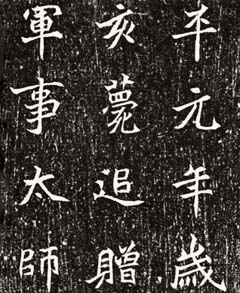 平元年歲
亥薨追贈
軍事太師